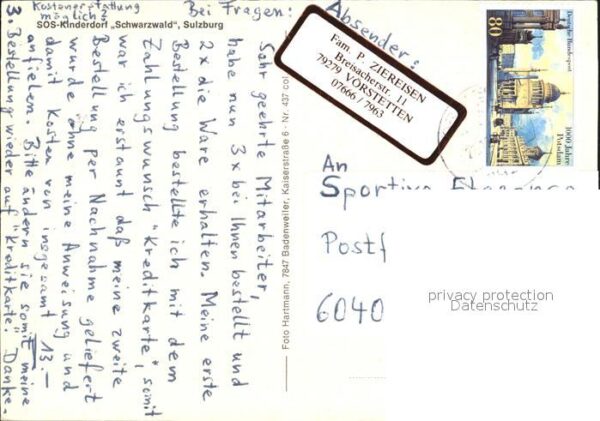 Kostenerstattung
möglich?
SOS-Kinderdorf „Schwarzwald", Sulzburg
Bei Fragen:
Absender:
Fam. P. ZIEREISEN
Breisacherstr. 11
79279 VÖRSTETTEN
07666 / 7963
Sehr geehrte Mitarbeiter,
habe nun 3x bei Ihnen bestellt und
2x die Ware erhalten. Meine erste
Bestellung bestellte ich mit dem
Zahlungswunsch "Kreditkarte", somit
war ich erstaunt daß meine zweite
Bestellung per Nachnahme geliefert
wurde ohne meine Anweisung und
damit Kosten von insgesamt 13.-
anfielen. Bitte ändern sie somit meine
3. Bestellung wieder auf "Kreditkarte". Danke.
Foto Hartmann, 7847 Badenweiler, Kaiserstraße 6 - Nr. 437 col
80
Deutsche Bundespost
1000 Jahre
Potsdam
An
Postf
6040
privacy protection
Datenschutz